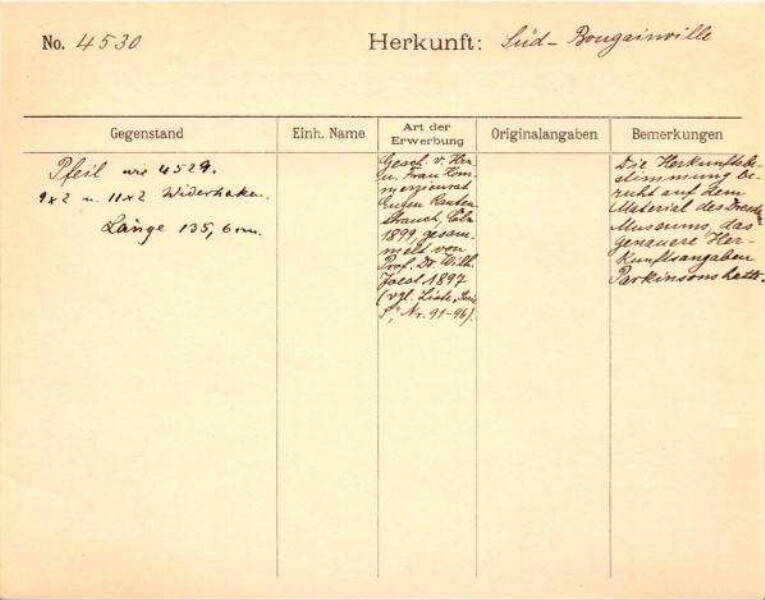 No. 4530
Herkunft: Süd-Bougainville
Gegenstand
Einh. Name
Art der Erwerbung
Originalangaben
Bemerkungen
Pfeil wie 4529.
9x2 u. 11x2 Widerhaken.
Länge 135,6 cm.
Gesch. v. Herr
u. Frau Kom-
merzienrat
Eugen Rauten-
strauch, Cöln
1899, gesam-
melt von
Prof. Dr. Wilh.
Joest 1897
(vgl. Liste, Serie
Nr. 91-96).
Die Herkunftsbe-
stimmung be-
ruht auf dem
Material des Dresdn.
Museums, das
genauere Her-
kunftsangaben
Parkinsons hatte.